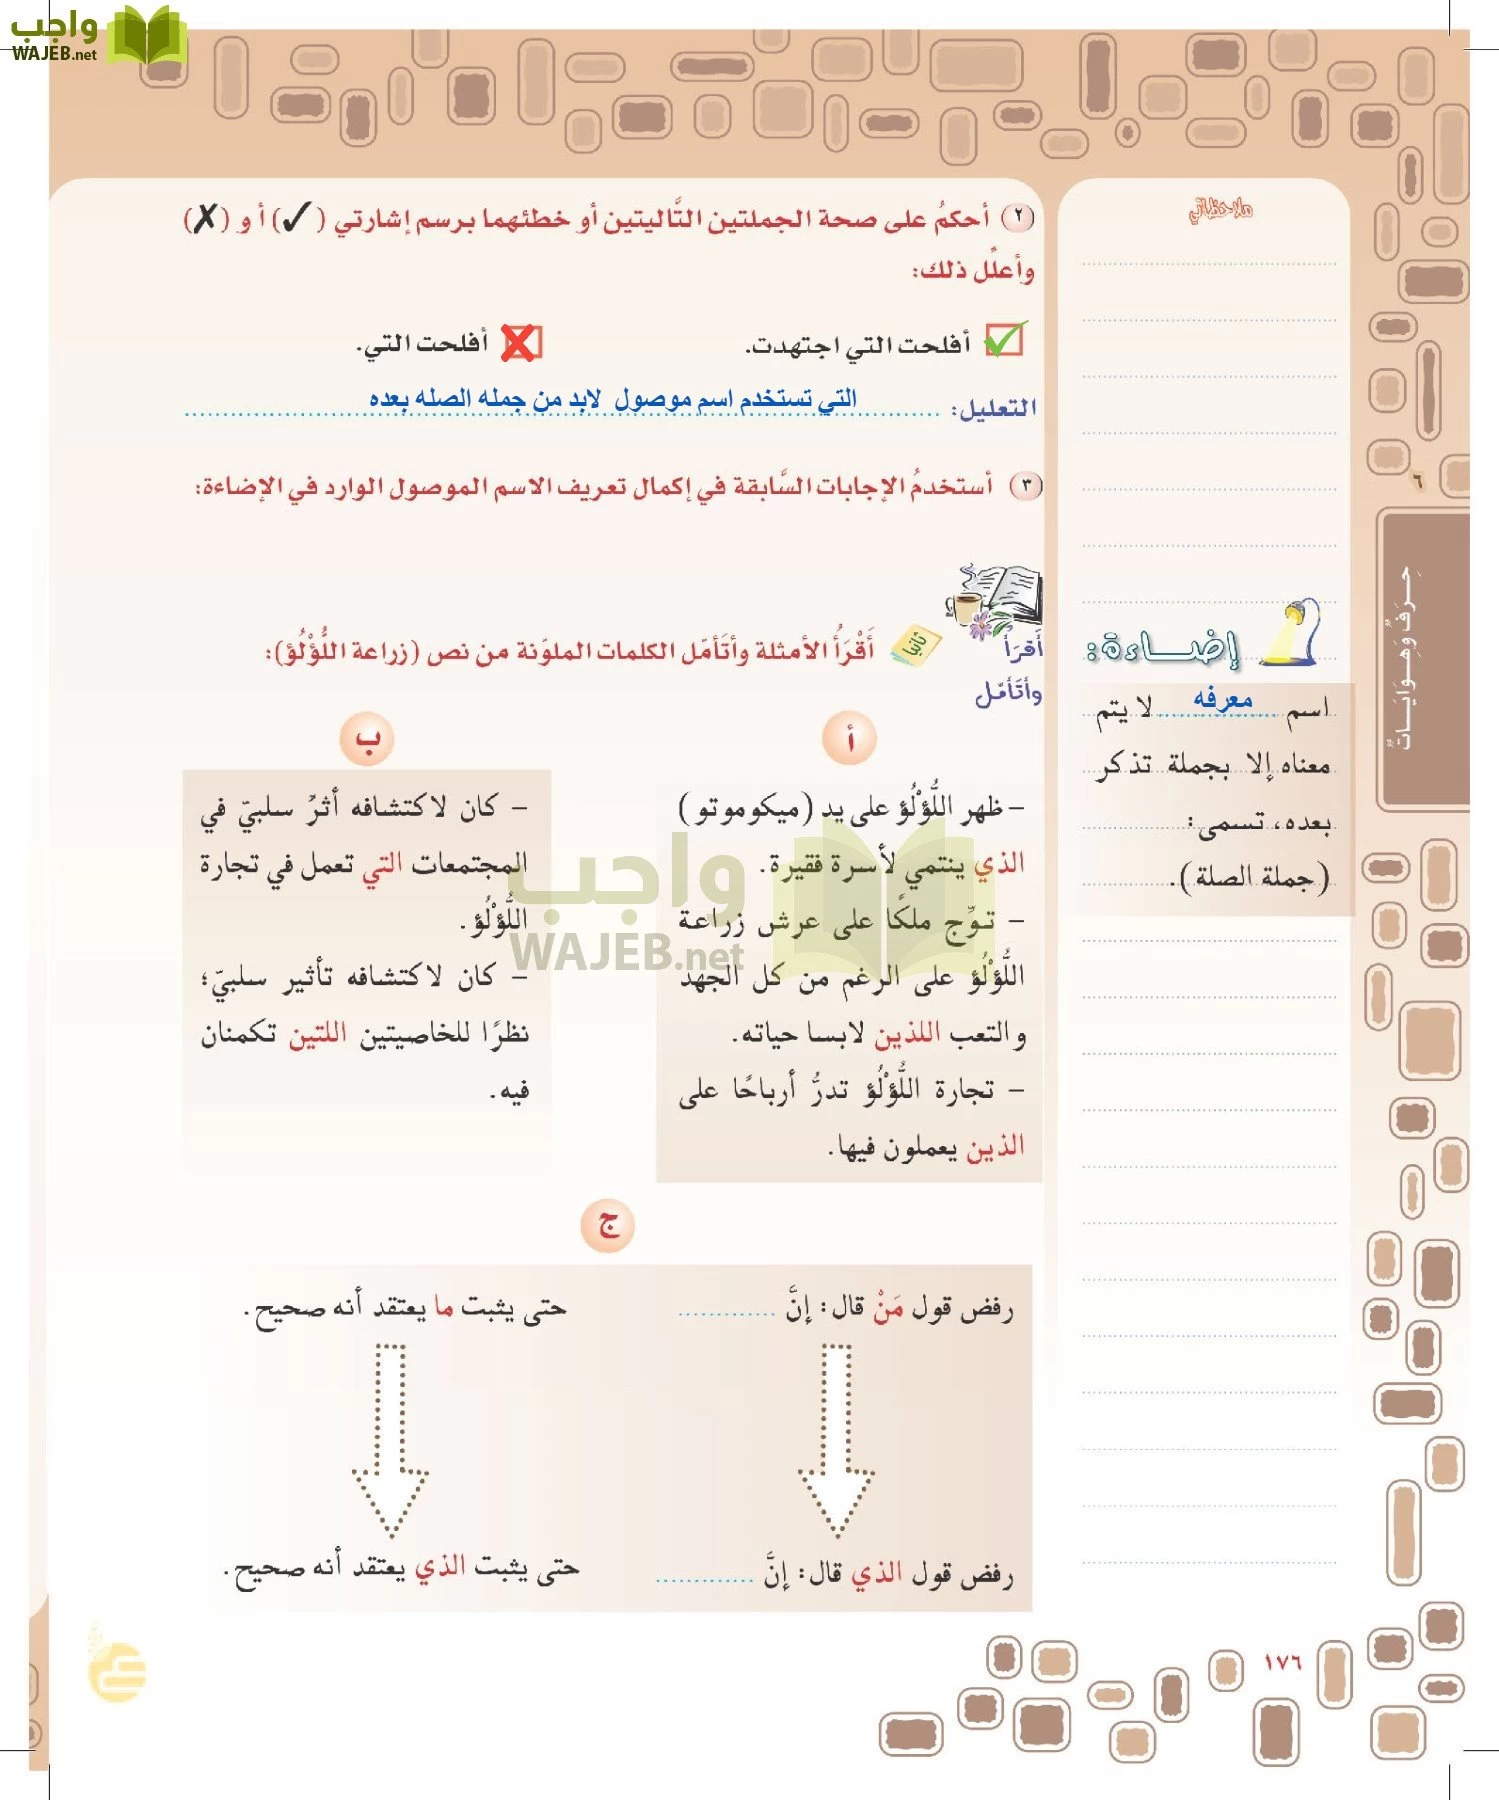 واجب
WAJEB.net
٢ أحكمُ على صحة الجملتين التَّاليتين أو خطئهما برسم إشارتي (✓) أ و (✗)
وأعلّل ذلك:
أفلحت التي اجتهدت.
أفلحت التي.
التعليل: التي تستخدم اسم موصول لابد من جمله الصله بعده
٣ أستخدمُ الإجابات السَّابقة في إكمال تعريف الاسم الموصول الوارد في الإضاءة:
أقرَأ
وأتَأمّل
ثانيًا
أَقْرَأُ الأمثلة وأتَأمّل الكلمات الملوّنة من نص (زراعة اللُّؤْلُؤ):
أ
– ظهر اللُّؤْلُؤ على يد (ميكوموتو)
الذي ينتمي لأسرة فقيرة.
– توِّج ملكًا على عرش زراعة
اللُّؤْلُؤ على الرغم من كل الجهد
والتعب اللذين لابسا حياته.
– تجارة اللُّؤْلُؤ تدرُّ أرباحًا على
الذين يعملون فيها.
ب
– كان لاكتشافه أثرٌ سلبيّ في
المجتمعات التي تعمل في تجارة
اللُّؤْلُؤ.
– كان لاكتشافه تأثير سلبيّ؛
نظرًا للخاصيتين اللتين تكمنان
فيه.
واجب
WAJEB.net
ج
رفض قول مَنْ قال: إنَّ ............
حتى يثبت ما يعتقد أنه صحيح.
رفض قول الذي قال: إنَّ ............
حتى يثبت الذي يعتقد أنه صحيح.
ملاحظاتي
إضاءة:
اسم معرفه لا يتم
معناه إلا بجملة تذكر
بعده، تسمى:
(جملة الصلة).
٦
حِـرَفٌ وَهِـوَايَـــاتٌ
١٧٦